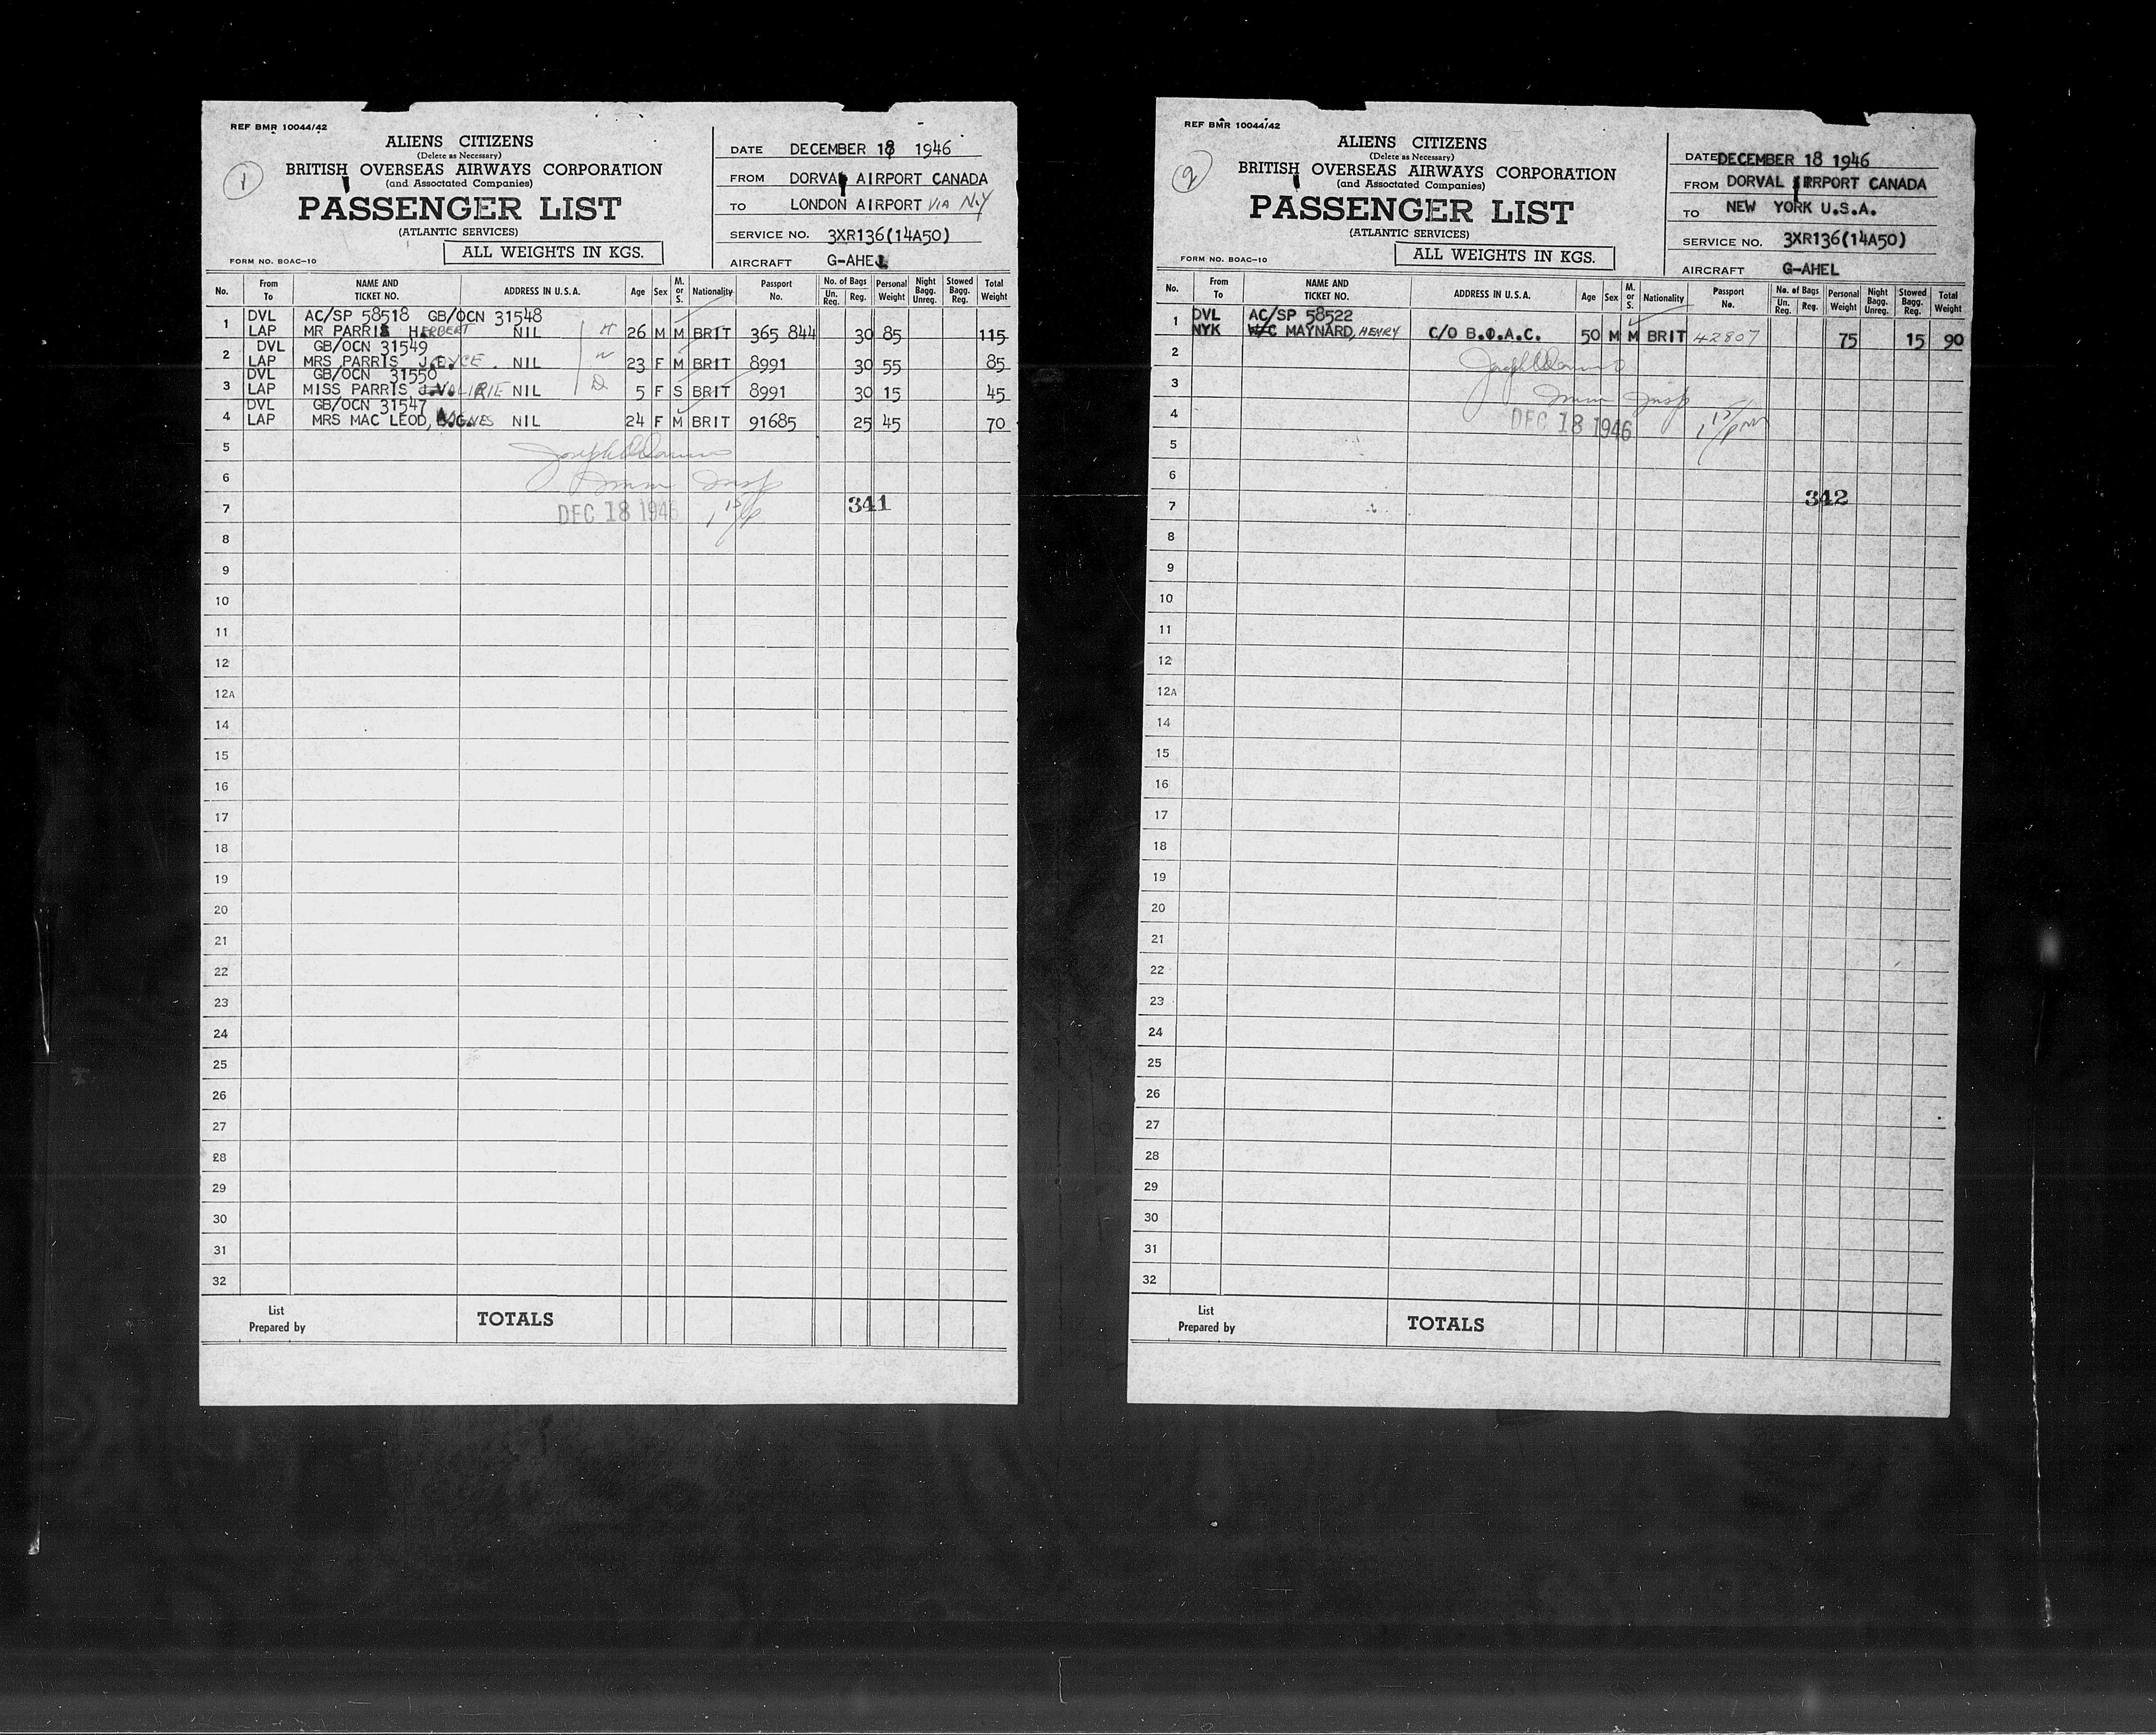 REF BMR 10044/42
1
ALIENS CITIZENS
(Delete as Necessary)
BRITISH OVERSEAS AIRWAYS CORPORATION
(and Associated Companies)
PASSENGER LIST
(ATLANTIC SERVICES)
ALL WEIGHTS IN KGS.
FORM NO. BOAC-10
DATE DECEMBER 18 1946
FROM DORVAL AIRPORT CANADA
TO LONDON AIRPORT VIA N.Y
SERVICE NO. 3XR136(14A50)
AIRCRAFT G-AHEL
No. From To NAME AND TICKET NO. ADDRESS IN U.S.A. Age Sex M. or S. Nationality Passport No. No. of Bags Un. Reg. Reg. Personal Weight Night Bagg. Unreg. Stowed Bagg. Reg. Total Weight
DVL AC/SP 58518 GB/OCN 31548
1 LAP MR PARRIS HERBERT NIL H 26 M M BRIT 365 844 30 85 115
DVL GB/OCN 31549
2 LAP MRS PARRIS JOYCE. NIL W 23 F M BRIT 8991 30 55 85
DVL GB/OCN 31550
3 LAP MISS PARRIS VALIRIE NIL D 5 F S BRIT 8991 30 15 45
DVL GB/OCN 31547
4 LAP MRS MAC LEOD, AGNES NIL 24 F M BRIT 91685 25 45 70
5
6 Imm Insp
7 DEC 18 1946 1 15/P 341
8
9
10
11
12
12A
14
15
16
17
18
19
20
21
22
23
24
25
26
27
28
29
30
31
32
List Prepared by TOTALS
REF BMR 10044/42
2
ALIENS CITIZENS
(Delete as Necessary)
BRITISH OVERSEAS AIRWAYS CORPORATION
(and Associated Companies)
PASSENGER LIST
(ATLANTIC SERVICES)
ALL WEIGHTS IN KGS.
FORM NO. BOAC-10
DATE DECEMBER 18 1946
FROM DORVAL AIRPORT CANADA
TO NEW YORK U.S.A.
SERVICE NO. 3XR136(14A50)
AIRCRAFT G-AHEL
No. From To NAME AND TICKET NO. ADDRESS IN U.S.A. Age Sex M. or S. Nationality Passport No. No. of Bags Un. Reg. Reg. Personal Weight Night Bagg. Unreg. Stowed Bagg. Reg. Total Weight
DVL AC/SP 58522
1 NYK W/C MAYNARD, HENRY C/O B.O.A.C. 50 M M BRIT 42807 75 15 90
2
3 Imm Insp
4 DEC 18 1946 1 15/PM
5
6
7 342
8
9
10
11
12
12A
14
15
16
17
18
19
20
21
22
23
24
25
26
27
28
29
30
31
32
List Prepared by TOTALS